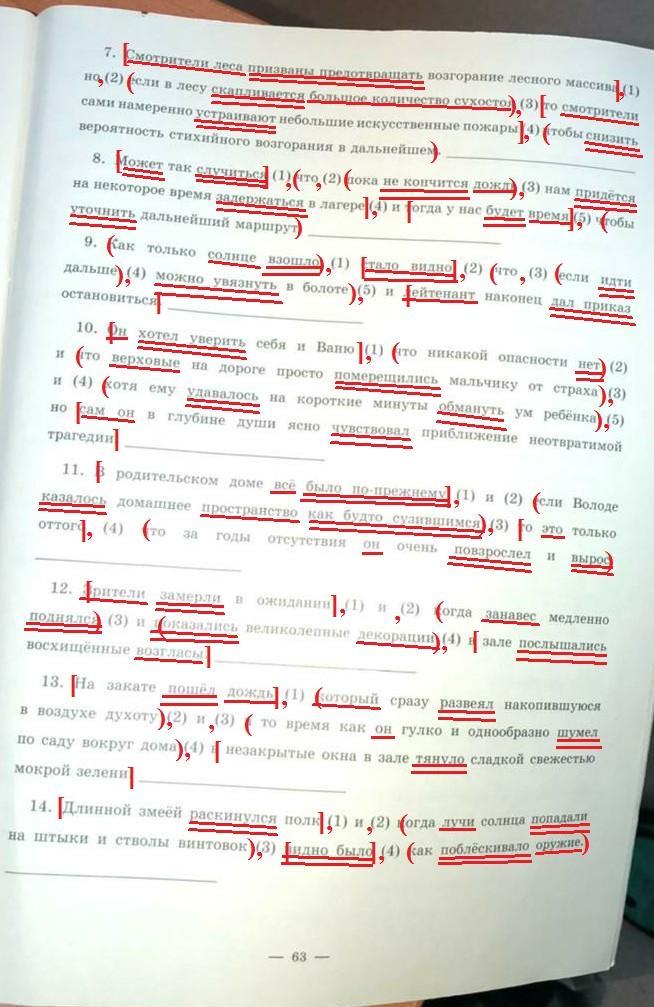 7. [Смотрители леса призваны предотвращать возгорание лесного массива], (1)
но, (2) (если в лесу скапливается большое количество сухостоя), (3) [то смотрители
сами намеренно устраивают небольшие искусственные пожары], (4) (чтобы снизить
вероятность стихийного возгорания в дальнейшем).
8. [Может так случиться] (1), (что, (2) (пока не кончится дождь), (3) нам придётся
на некоторое время задержаться в лагере], (4) и [тогда у нас будет время], (5) (чтобы
уточнить дальнейший маршрут)
9. (Как только солнце взошло), (1) [стало видно], (2) (что, (3) (если идти
дальше), (4) можно увязнуть в болоте), (5) и [лейтенант наконец дал приказ
остановиться]
10. [Он хотел уверить себя и Ваню], (1) (что никакой опасности нет) (2)
и (что верховые на дороге просто померещились мальчику от страха), (3)
и (4) (хотя ему удавалось на короткие минуты обмануть ум ребёнка), (5)
но [сам он в глубине души ясно чувствовал приближение неотвратимой
трагедии]
11. [В родительском доме всё было по-прежнему], (1) и (2) (если Володе
казалось домашнее пространство как будто сузившимся), (3) [то это только
оттого], (4) (что за годы отсутствия он очень повзрослел и вырос)
12. [Зрители замерли в ожидании], (1) и, (2) (когда занавес медленно
поднялся) (3) и (показались великолепные декорации), (4) в [зале послышались
восхищённые возгласы]
13. [На закате пошёл дождь], (1) (который сразу развеял накопившуюся
в воздухе духоту), (2) и, (3) (в то время как он гулко и однообразно шумел
по саду вокруг дома), (4) в [незакрытые окна в зале тянуло сладкой свежестью
мокрой зелени]
14. [Длинной змеёй раскинулся полк], (1) и, (2) (когда лучи солнца попадали
на штыки и стволы винтовок), (3) [видно было], (4) (как поблёскивало оружие.)
— 63 —